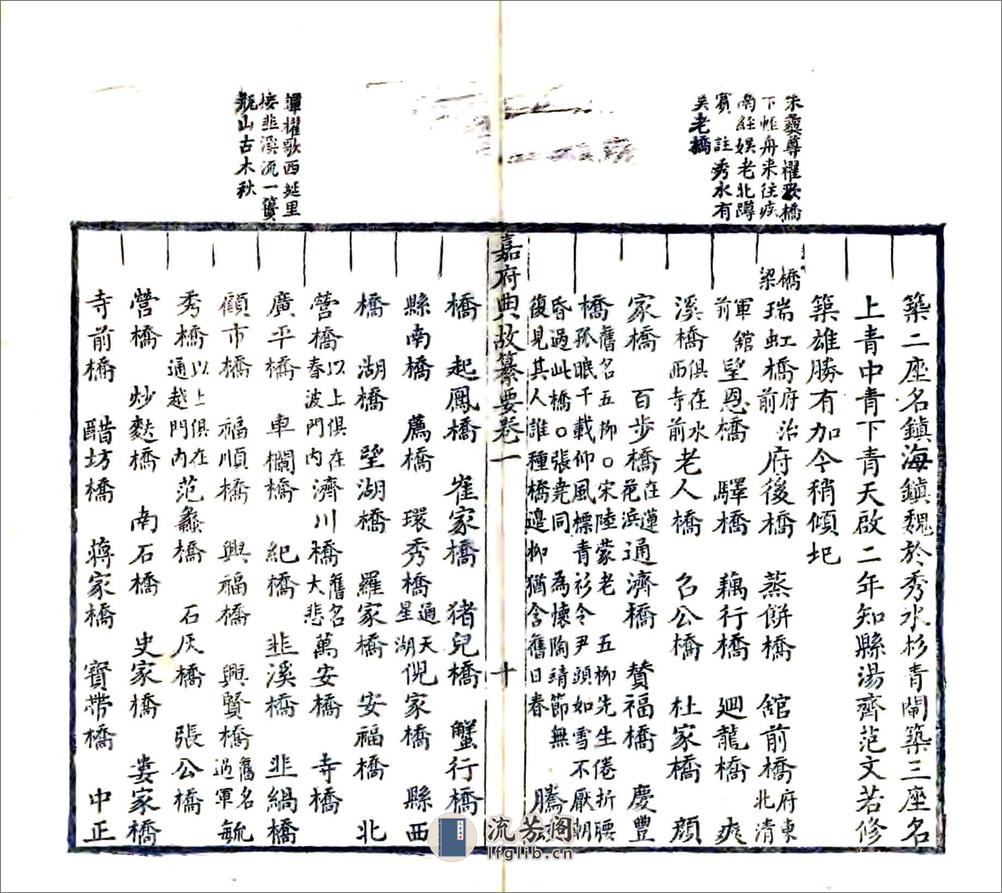 朱彝尊櫂歌橋
下帷舟来往疾
南經娛老北蹲
賓 註秀水有
吴老橋
築二座名鎮海鎮魏於秀水杉青閘築三座名
上青中青下青天啟二年知縣湯齊范文若修
築雄勝有加今稍傾圮
橋梁
瑞虹橋府治前 府後橋 蒸餅橋 舘前橋府東北清
軍舘前 望恩橋 驛橋 藕行橋 廻龍橋 爽
溪橋俱在水西寺前 老人橋 名公橋 杜家橋 顔
家橋 百步橋在蓮花浜 通濟橋 賛福橋 慶豐
橋舊名五柳○宋陸蒙老 五柳先生倦折腰
孤眠千載仰風標青衫令尹頭如雪不厭朝
昏過此橋○張堯同 為懷陶靖節無
復見其人誰種橋邊柳猶含舊日春 騰
嘉府典故纂要卷一 十
橋 起鳳橋 崔家橋 猪兒橋 蟹行橋
縣南橋 薦橋 環秀橋通天星湖 倪家橋 縣西
橋 湖橋 望湖橋 羅家橋 安福橋 北
營橋以上俱在春波門内 濟川橋舊名大悲 萬安橋 寺橋
廣平橋 車欄橋 紀橋 韭溪橋 韭緺橋
顧市橋 福順橋 興福橋 興賢橋舊名過軍 毓
秀橋以上俱在通越門内 范蠡橋 石灰橋 張公橋
營橋 炒麩橋 南石橋 史家橋 婁家橋
寺前橋 醋坊橋 蔣家橋 寳帶橋 中正
譚櫂歌西埏里
接韭溪流一簣
瓶山古木秋
流芳阁
lfglib.cn